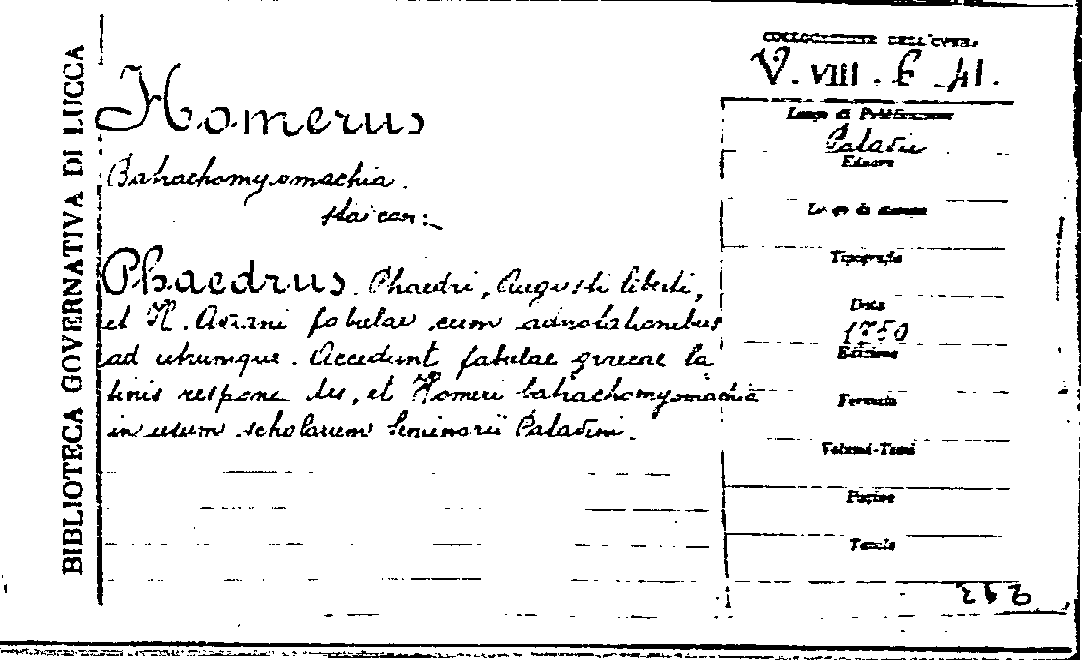 BIBLIOTECA GOVERNATIVA DI LUCCA
COLLOCAZIONE DELL'OPERA
V. VIII. E. 41.
Homerus
Batrachomyomachia.
Sta con:
Phaedrus. Phaedri, Augusti liberti,
et N. Aviani fabulae cum adnotationibus
ad utrumque. Accedunt fabulae graecae la
tinis respondentes, et Homeri batrachomyomachia
in usum scholarum Seminarii Patavini.
Luogo di Pubblicazione
Patavii
Editore
Luogo di stampa
Tipografia
Data
1750
Edizione
Formato
Volumi-Tomi
Pagine
Tavole